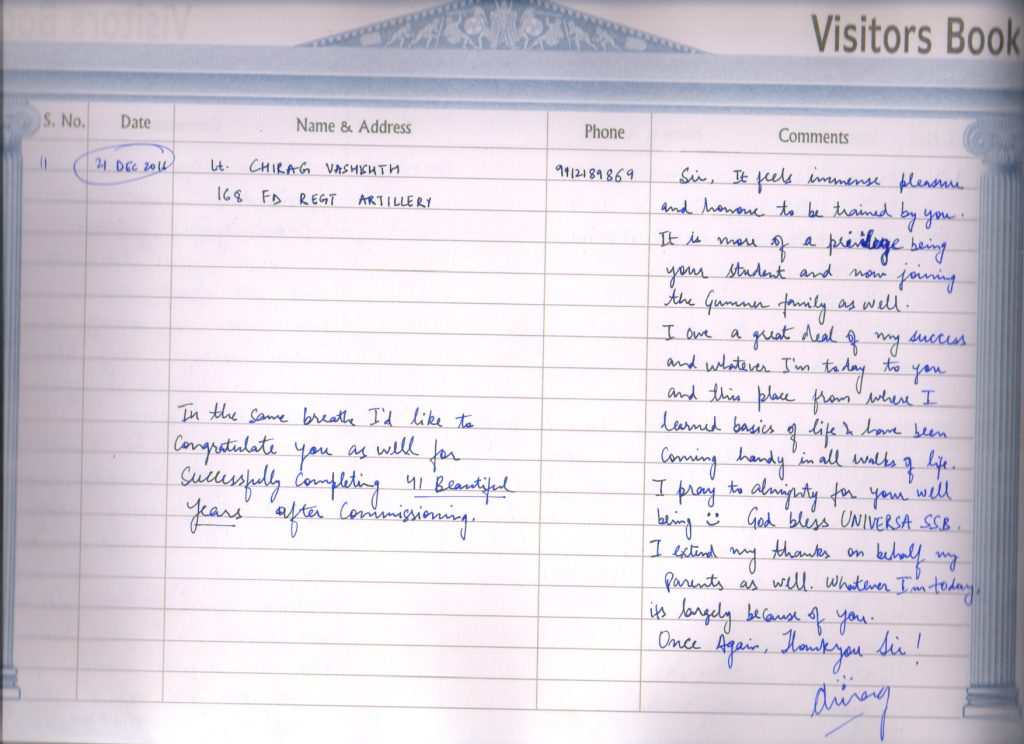 Visitors Book
S. No. Date Name & Address Phone Comments
11 21 DEC 2016 Lt. CHIRAG VASHISHTH 9912189869
168 FD REGT ARTILLERY
Sir, It feels immense pleasure
and honour to be trained by you.
It is more of a privilege being
your student and now joining
the Gunner family as well.
I owe a great deal of my success
and whatever I'm today to you
and this place from where I
learned basics of life & have been
coming handy in all walks of life.
I pray to almighty for your well
being God bless UNIVERSA SSB.
I extend my thanks on behalf my
Parents as well. Whatever I'm today,
its largely because of you.
Once Again, Thankyou Sir!
Chirag
In the same breath I'd like to
Congratulate you as well for
Successfully Completing 41 Beautiful
Years after Commissioning.